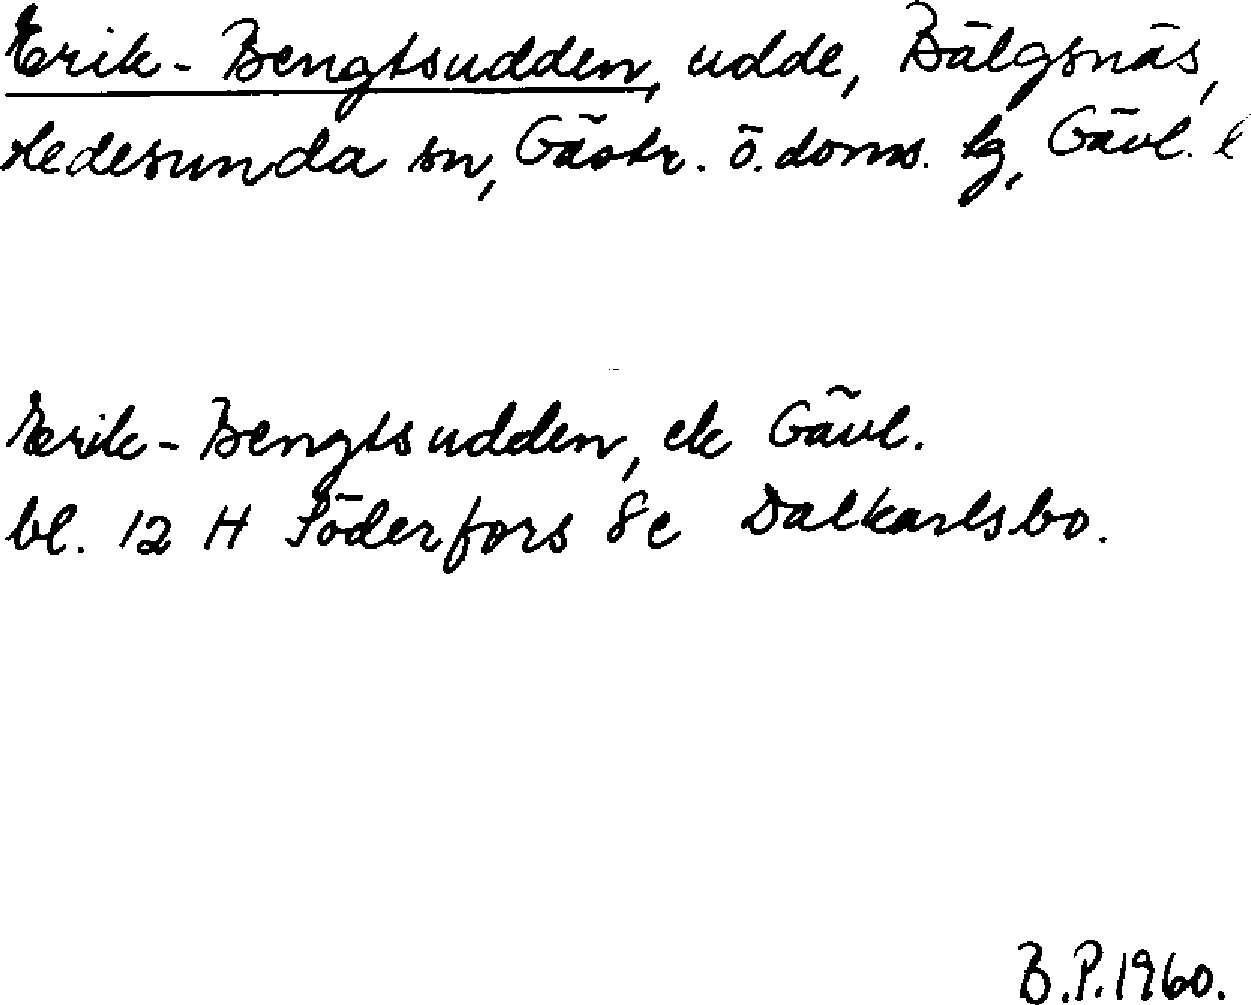 Erik-Bengtsudden, udde, Bälgsnäs,
Hedesunda sn, Gästr. ö. doms. tg, Gävl. l
Erik-Bengtsudden, ek Gävl.
bl. 12 H Söderfors 8c Dalkarlsbo.
B.P. 1960.